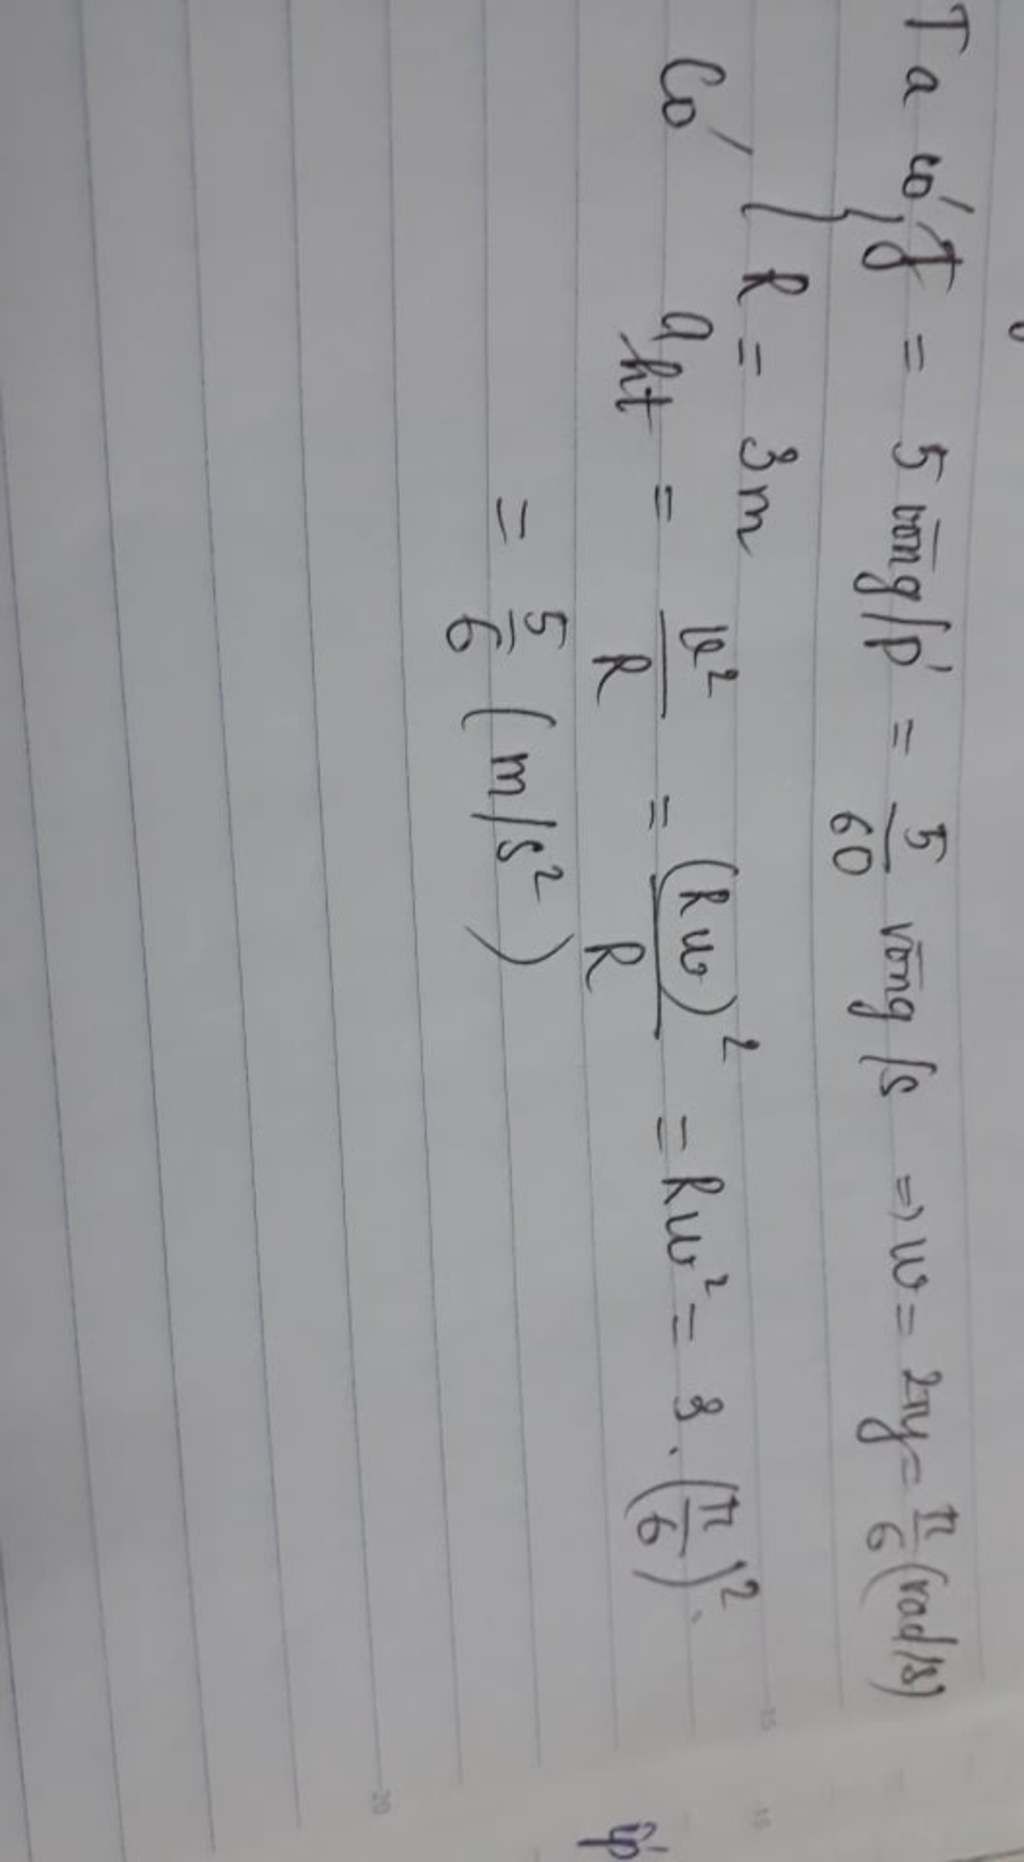 Ta có { f = 5 vòng/p' = 5/60 vòng/s => w = 2πf = π/6 (rad/s)
R = 3m
Có a_ht = v²/R = (Rw)²/R = Rw² = 3 . (π/6)².
= 5/6 (m/s²)
15
15
20